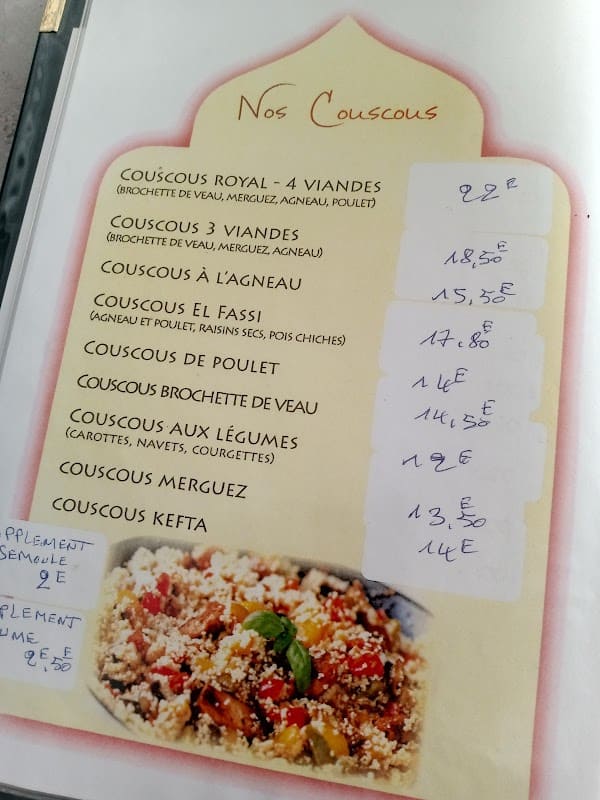 Nos Couscous
COUSCOUS ROYAL - 4 VIANDES 22 E
(BROCHETTE DE VEAU, MERGUEZ, AGNEAU, POULET)
COUSCOUS 3 VIANDES 18,50 E
(BROCHETTE DE VEAU, MERGUEZ, AGNEAU)
COUSCOUS À L'AGNEAU 15,50 E
COUSCOUS EL FASSI 17,80 E
(AGNEAU ET POULET, RAISINS SECS, POIS CHICHES)
COUSCOUS DE POULET 14 E
COUSCOUS BROCHETTE DE VEAU 14,50 E
COUSCOUS AUX LÉGUMES 12 E
(CAROTTES, NAVETS, COURGETTES)
COUSCOUS MERGUEZ 13,50 E
COUSCOUS KEFTA 14 E
PPLEMENT
SEMOULE
2 E
PLEMENT
UME
2 E,50